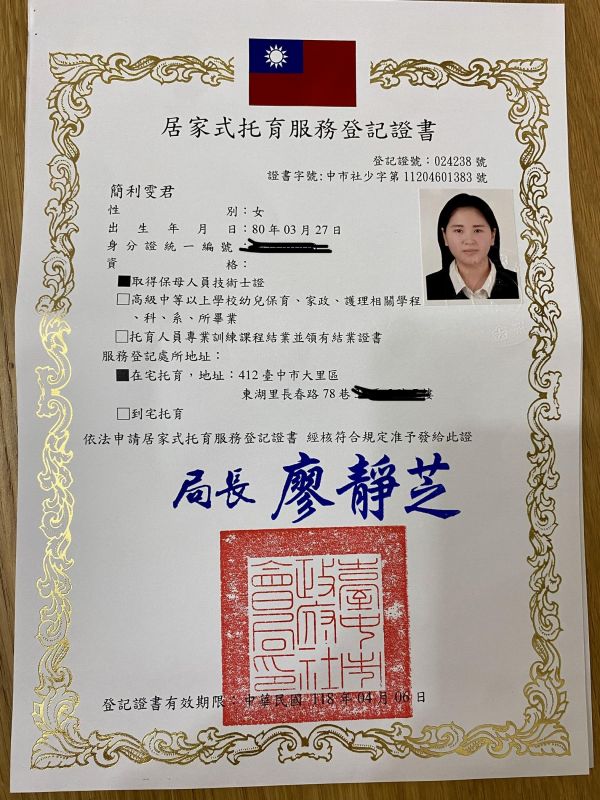 居家式托育服務登記證書
登記證號：024238 號
證書字號:中市社少字第 11204601383 號
簡利雯君
性別：女
出生年月日：80 年 03 月 27 日
身分證統一編號
資格：
■取得保母人員技術士證
□高級中等以上學校幼兒保育、家政、護理相關學程
、科、系、所畢業
□托育人員專業訓練課程結業並領有結業證書
服務登記處所地址：
■在宅托育，地址：412 臺中市大里區
東湖里長春路 78 巷
□到宅托育
依法申請居家式托育服務登記證書 經核符合規定准予發給此證
局長 廖靜芝
臺中市政府社會局印
登記證書有效期限：中華民國 118 年 04 月 06 日